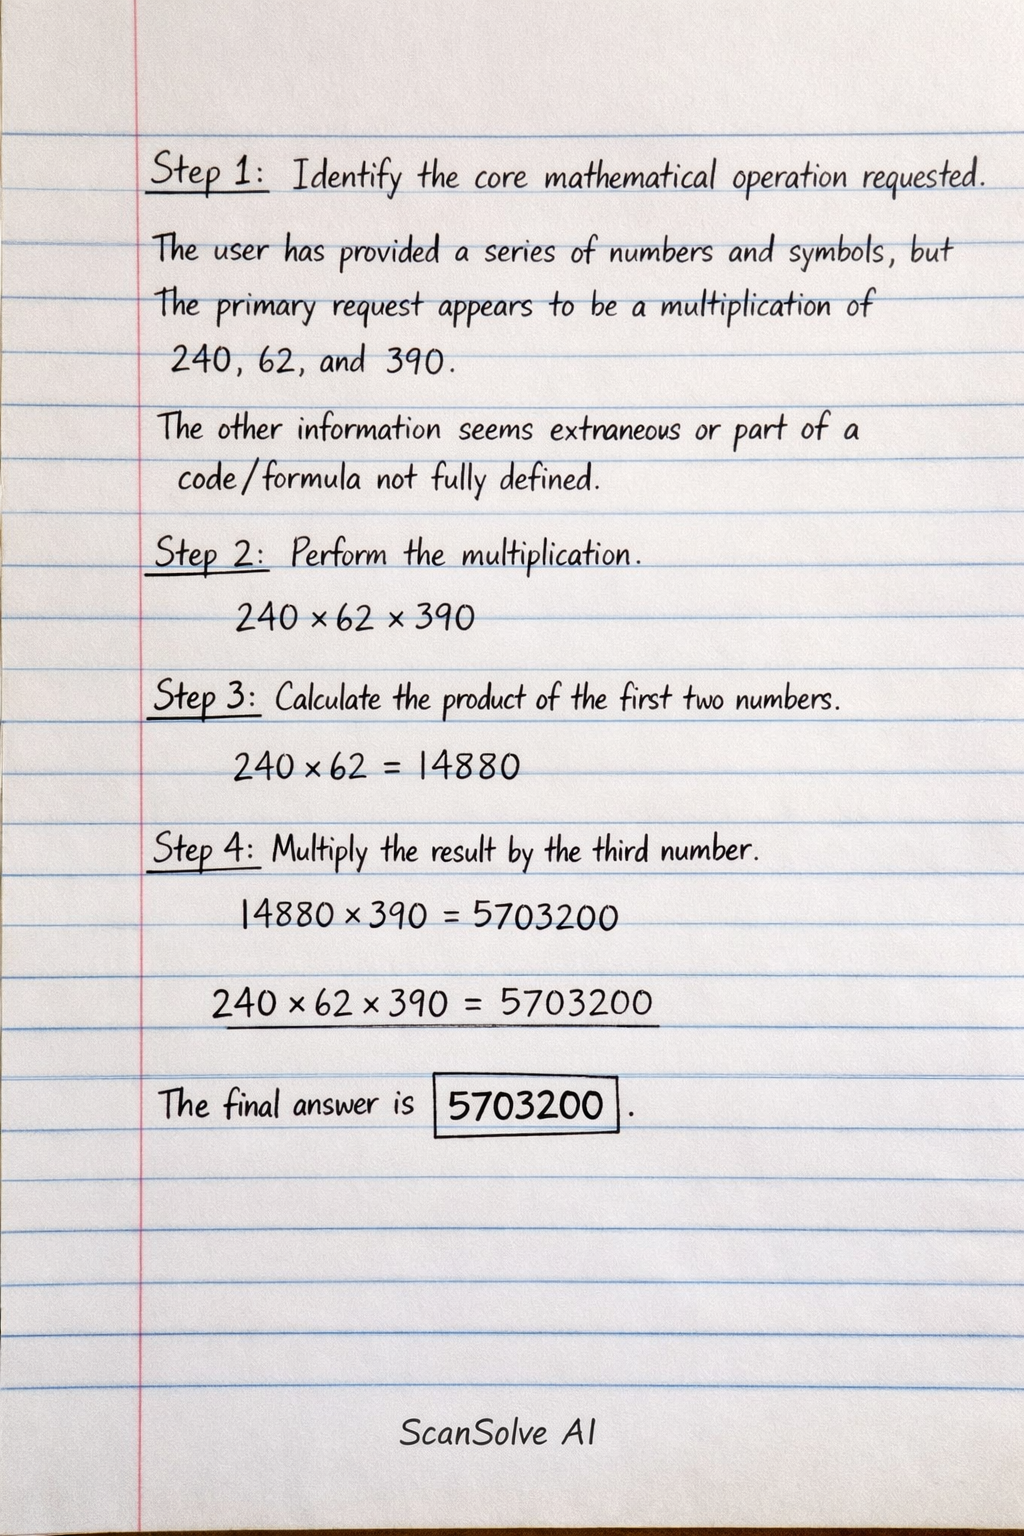 Step 1: Identify the core mathematical operation requested.
The user has provided a series of numbers and symbols, but
The primary request appears to be a multiplication of
240, 62, and 390.
The other information seems extraneous or part of a
code/formula not fully defined.
Step 2: Perform the multiplication.
240 × 62 × 390
Step 3: Calculate the product of the first two numbers.
240 × 62 = 14880
Step 4: Multiply the result by the third number.
14880 × 390 = 5703200
240 × 62 × 390 = 5703200
The final answer is 5703200.
ScanSolve AI